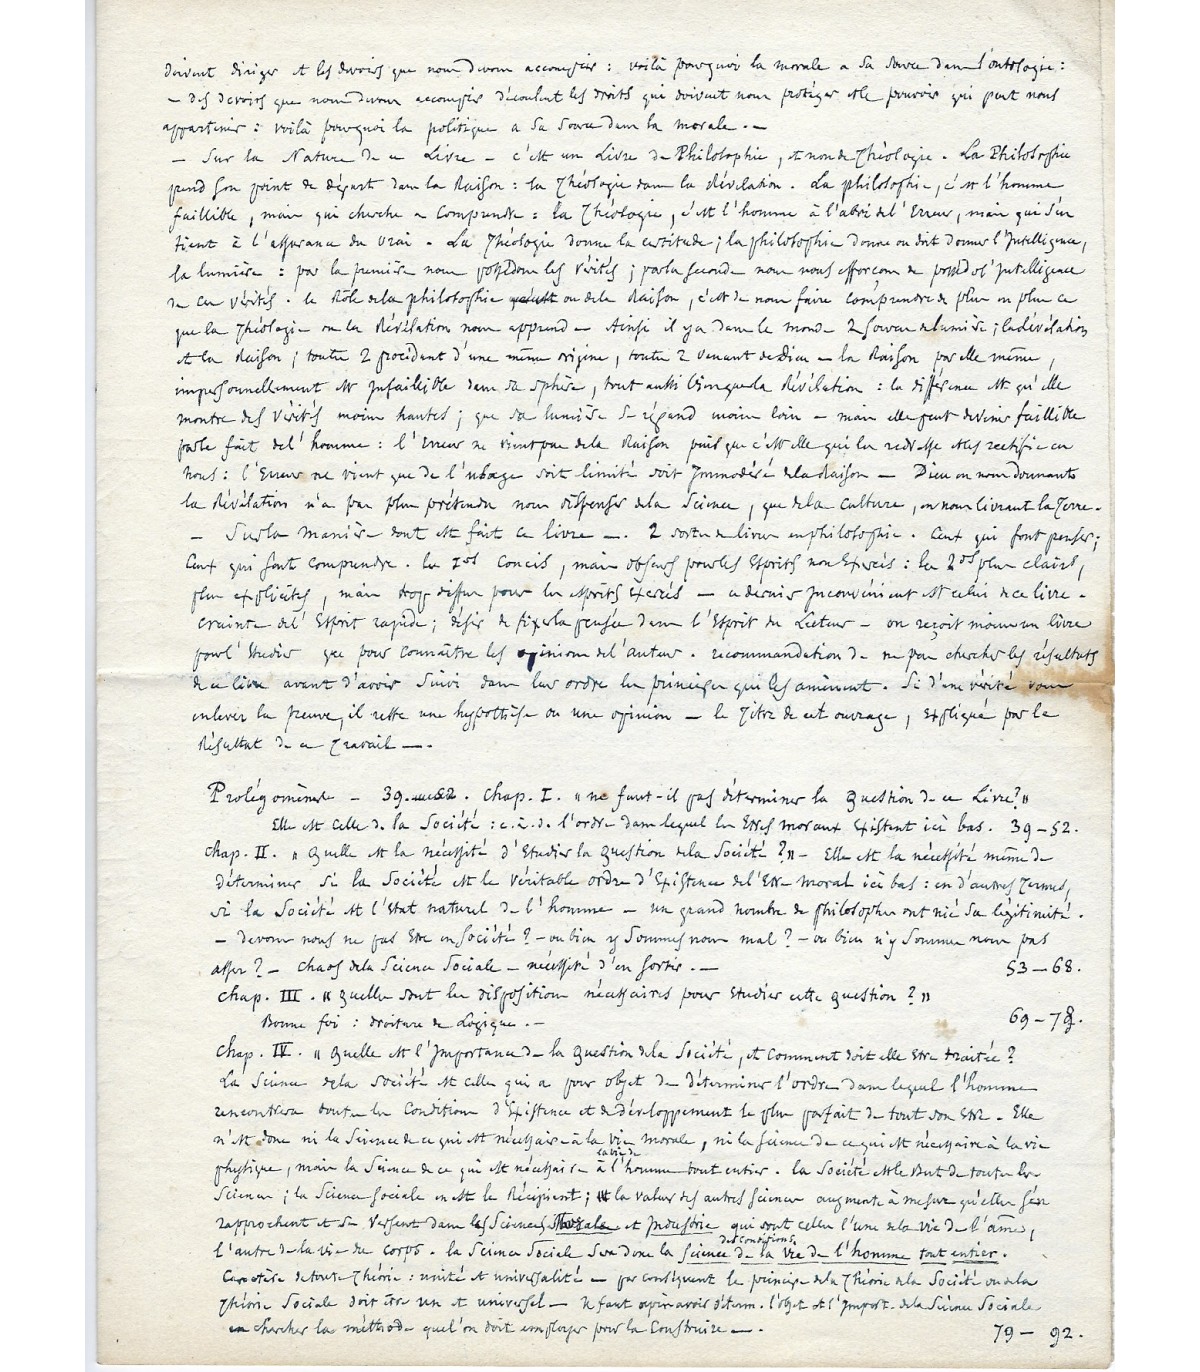 doivent diriger et les devoirs que nous devons accomplir : voilà pourquoi la morale a sa source dans l'ontologie :
— des devoirs que nous devons accomplir découlent les droits qui doivent nous protéger et le pouvoir qui peut nous
appartenir : voilà pourquoi la politique a sa source dans la morale. —
— Sur la Nature de ce Livre — c'est un Livre de Philosophie, et non de Théologie. La Philosophie
prend son point de départ dans la Raison : la Théologie dans la Révélation. La philosophie, c'est l'homme
faillible, mais qui cherche à comprendre : la Théologie, c'est l'homme à l'abri de l'Erreur, mais qui s'en
tient à l'assurance du vrai. La Théologie donne la certitude ; la philosophie donne ou doit donner l'Intelligence,
la lumière : par la première nous possédons les vérités ; par la seconde nous nous efforçons de posséd. l'Intelligence
de ces vérités. le Rôle de la philosophie ou de la Raison, c'est de nous faire comprendre de plus en plus ce
que la Théologie ou la Révélation nous apprend — Ainsi il y a dans le monde 2 sources de lumière ; la Révélation
et la Raison ; toutes 2 procédant d'une même origine, toutes 2 venant de Dieu — la Raison par elle même,
impersonnellement est Infaillible dans sa sphère, tout aussi bien que la Révélation : la différence est qu'elle
montre des vérités moins hautes ; que sa lumière se répand moins loin — mais elle peut devenir faillible
par le fait de l'homme : l'Erreur ne vient pas de la Raison puisque c'est elle qui la redresse et la rectifie en
nous : l'Erreur ne vient que de l'usage soit limité soit Immodéré de la Raison — Dieu en nous donnant
la Révélation n'a pas plus prétendu nous dispenser de la Science, que de la culture, en nous livrant la Terre. —
— Sur la manière dont est fait ce livre —. 2 sortes de livres en philosophie. Ceux qui font penser ;
Ceux qui font comprendre. les 1ers Concis, mais obscurs pour les Esprits non Exercés : les 2ds plus clairs,
plus explicites, mais trop diffus pour les esprits exercés — ce dernier Inconvénient est celui de ce livre —
crainte de l'Esprit rapide ; désir de fixer la pensée dans l'Esprit du Lecteur — on reçoit moins un livre
pour l'Etudier que pour connaître les opinions de l'auteur. recommandation de ne pas chercher les résultats
de ce livre avant d'avoir suivi dans leur ordre les principes qui les amènent. Si d'une vérité vous
enlevez la preuve, il reste une hypothèse ou une opinion — le Titre de cet ouvrage, expliqué par le
Résultat de ce Travail —.
Prolégomènes — 39. Chap. I. « ne faut-il pas déterminer la question de ce Livre ? »
Elle est celle de la Société : c.à.d. l'ordre dans lequel les Etres moraux Existent ici bas. 39—52.
Chap. II. « Quelle est la nécessité d'Etudier la question de la Société ? » — Elle est la nécessité même de
déterminer si la Société est le véritable ordre d'Existence de l'Etre moral ici bas : en d'autres Termes,
si la Société est l'Etat naturel de l'homme — un grand nombre de philosophes ont nié sa légitimité.
— devons nous ne pas Etre en Société ? — ou bien y Sommes nous mal ? — ou bien n'y Sommes nous pas
assez ? — chaos de la Science Sociale — nécessité d'en sortir. — 53—68.
Chap. III. « Quelles sont les dispositions nécessaires pour Etudier cette question ? »
Bonne foi : droiture de Logique. — 69—78.
Chap. IV. « Quelle est l'Importance de la Question de la Société, et Comment doit elle Etre traitée ?
La Science de la Société est celle qui a pour objet de déterminer l'ordre dans lequel l'homme
rencontrera toutes les Conditions d'Existence et de développement le plus parfait de tout son Etre — Elle
n'est donc ni la Science de ce qui est nécessaire à la vie morale, ni la Science de ce qui est nécessaire à la vie
physique, mais la Science de ce qui est nécessaire à la vie de l'homme tout entier. la Société est le But de toutes les
Sciences ; la Science Sociale en est le Récipient ; la valeur des autres Sciences augmente à mesure qu'elles s'en
rapprochent et se versent dans les Sciences Morale et Industrie qui sont celles l'une de la vie de l'âme,
l'autre de la vie du corps. la Science Sociale sera donc la Science des conditions de la vie de l'homme tout entier.
Caractère de toute Théorie : unité et universalité — par conséquent le principe de la Théorie de la Société ou de la
Théorie Sociale doit être un et universel — Il faut après avoir déterm. l'objet et l'Import. de la Science Sociale
en chercher la méthode que l'on doit employer pour la Construire —. 79—92.